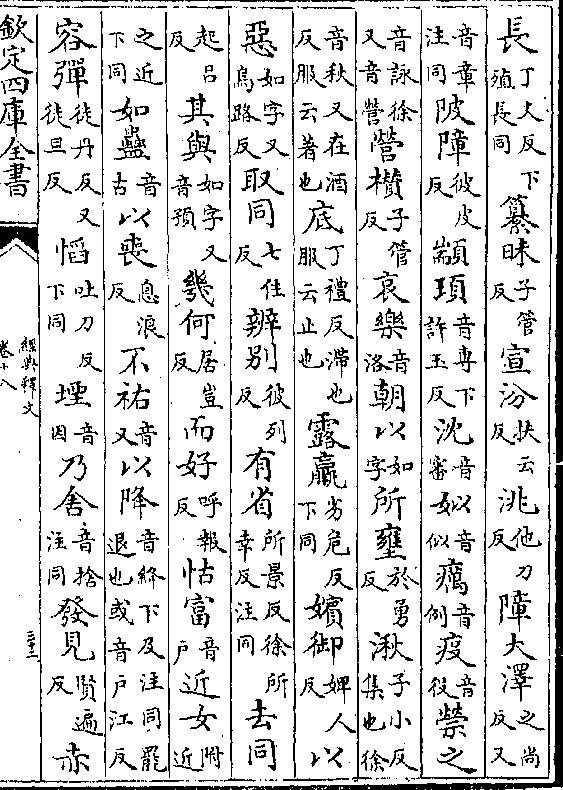 長丁丈反下殖長同纂昧子管反宣汾扶云反洮他刀反障大澤之尚反又
音章注同陂障彼皮反顓頊音專下許玉反沈音審姒音似癘音例疫音役禜之
音詠徐又音營營欑子管反哀樂音洛朝以如字所壅於勇反湫子小反徐
音秋又在酒反服云著也底丁禮反滯也服云止也露羸劣危反下同嬪御婢人反以
惡如字又烏路反取同七住反辨别彼列反有省所景反徐所幸反注同去同
起吕反其與如字又音預幾何居豈反而好呼報反怙富音户近女附近
之近下同如蠱音古以喪息浪反不祐音又以降音絳下及注同罷退也或音户江反
容彈徒丹反又徒旦反慆吐刀反下同堙音因乃舍音捨注同發見賢遍反赤
欽定四庫全書
經典釋文
卷十八
三十二